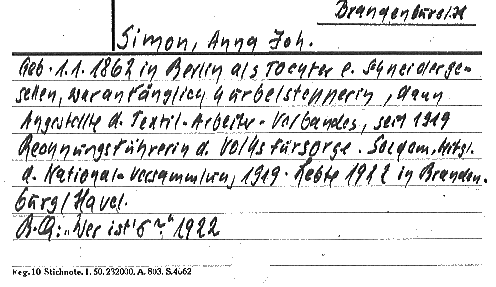 Brandenburg/H
Simon, Anna Joh.
Geb. 1.1.1862 in Berlin als Tochter e. Schneiderge-
sellen, war anfänglich Gürtelstepperin, dann
Angestellte d. Textil-Arbeiter-Verbandes, seit 1919
Rechnungsführerin d. Volksfürsorge. Sozdem., Mitgl.
d. National-Versammlung, 1919. Lebte 1922 in Branden-
burg/Havel.
B.Q.: „Wer ist's?" 1922
Reg. 10 Stichnote. I. 50. 232000. A. 803. S. 4662